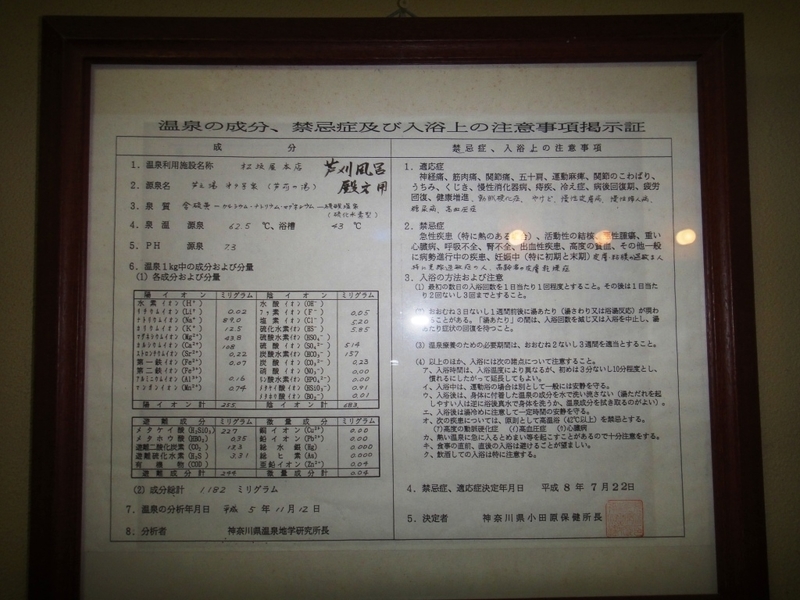 温泉の成分、禁忌症及び入浴上の注意事項掲示証
成分
1．温泉利用施設名称 松坂屋本店 芦刈風呂
殿方用
2．源泉名 芦之湯
3．泉質
4．泉温 源泉 62.5 ℃、浴槽 43 ℃
5．PH 源泉 7.3
6．温泉1kg中の成分および分量
(1) 各成分および分量
陽イオン ミリグラム 陰イオン ミリグラム
水素イオン(H⁺) 水酸イオン(OH⁻)
リチウムイオン(Li⁺) 0.02 フッ素イオン(F⁻) 0.05
ナトリウムイオン(Na⁺) 89.0 塩素イオン(Cl⁻)
カリウムイオン(K⁺) 12.5 硫化水素イオン(HS⁻) 5.85
マグネシウムイオン(Mg²⁺) 43.8 硫酸水素イオン(HSO₄⁻)
カルシウムイオン(Ca²⁺) 108 硫酸イオン(SO₄²⁻) 514
ストロンチウムイオン(Sr²⁺) 0.22 炭酸水素イオン(HCO₃⁻) 157
第一鉄イオン(Fe²⁺) 0.07 炭酸イオン(CO₃²⁻) 0.23
第二鉄イオン(Fe³⁺) 0.00
アルミニウムイオン(Al³⁺) 0.16 0.00
マンガンイオン(Mn²⁺) 0.74 0.91
メタホウ酸イオン(BO₂⁻) 0.01
陽イオン計 255 陰イオン計 683
遊離成分 ミリグラム 微量成分 ミリグラム
メタケイ酸(H₂SiO₃) 227 銅イオン(Cu²⁺) 0.00
メタホウ酸(HBO₂) 0.35 鉛イオン(Pb²⁺) 0.00
遊離二酸化炭素(CO₂) 13.3 総水銀(Hg) 0.000
遊離硫化水素(H₂S) 3.31 総ヒ素(As) 0.000
有機物(COD) 亜鉛イオン(Zn²⁺) 0.04
遊離成分計 244 微量成分計 0.04
(2) 成分総計 1,182 ミリグラム
7．温泉の分析年月日 平成 5年 11月 12日
8．分析者 神奈川県温泉地学研究所長
禁忌症、入浴上の注意事項
1．適応症
神経痛、筋肉痛、関節痛、五十肩、運動麻痺、関節のこわばり、
うちみ、くじき、慢性消化器病、痔疾、冷え症、病後回復期、疲労
回復、健康増進、動脈硬化症、やけど、慢性皮膚病、慢性婦人病、
糖尿病、高血圧症
2．禁忌症
急性疾患（特に熱のある、活動性の結核、性腫瘍、重い
心臓病、呼吸不全、腎不全、出血性疾患、高度の貧血、その他一般
に病勢進行中の疾患、妊娠中（特に初期と末期）皮膚粘膜の過敏な人
特に光線過敏症の人、高齢者の皮膚乾燥症
3．入浴の方法および注意
(1) 最初の数日の入浴回数を1日当たり1回程度とすること。その後は1日当た
り2回ないし3回までとすること。
(2) おおむね3日ないし1週間前後に湯あたり（湯さわり又は浴湯反応）が現わ
ることがある。「湯あたり」の間は、入浴回数を減じ又は入浴を中止し、湯
あたり症状の回復を待つこと。
(3) 温泉療養のための必要期間は、おおむね2ないし3週間を適当とすること。
(4) 以上のほか、入浴には次の諸点について注意すること。
ア、入浴時間は、入浴温度により異なるが、初めは3分ないし10分程度とし、
慣れるにしたがって延長してもよい。
イ、入浴中は、運動浴の場合は別として一般には安静を守る。
ウ、入浴後は、身体に付着した温泉の成分を水で洗い流さない（湯ただれを起
しやすい人は逆に浴後真水で身体を洗うか、温泉成分を拭き取るのがよい）。
エ、入浴後は湯冷めに注意して一定時間の安静を守る。
オ、次の疾患については、原則として高温浴（42℃以上）を禁忌とする。
(ｱ)高度の動脈硬化症 (ｲ)高血圧症 (ｳ)心臓病
カ、熱い温泉に急に入るとめまい等を起こすことがあるので十分注意をする。
キ、食事の直前、直後の入浴は避けることが望ましい。
ク、飲酒しての入浴は特に注意する。
4．禁忌症、適応症決定年月日 平成 8年 7月22日
5．決定者 神奈川県小田原保健所長